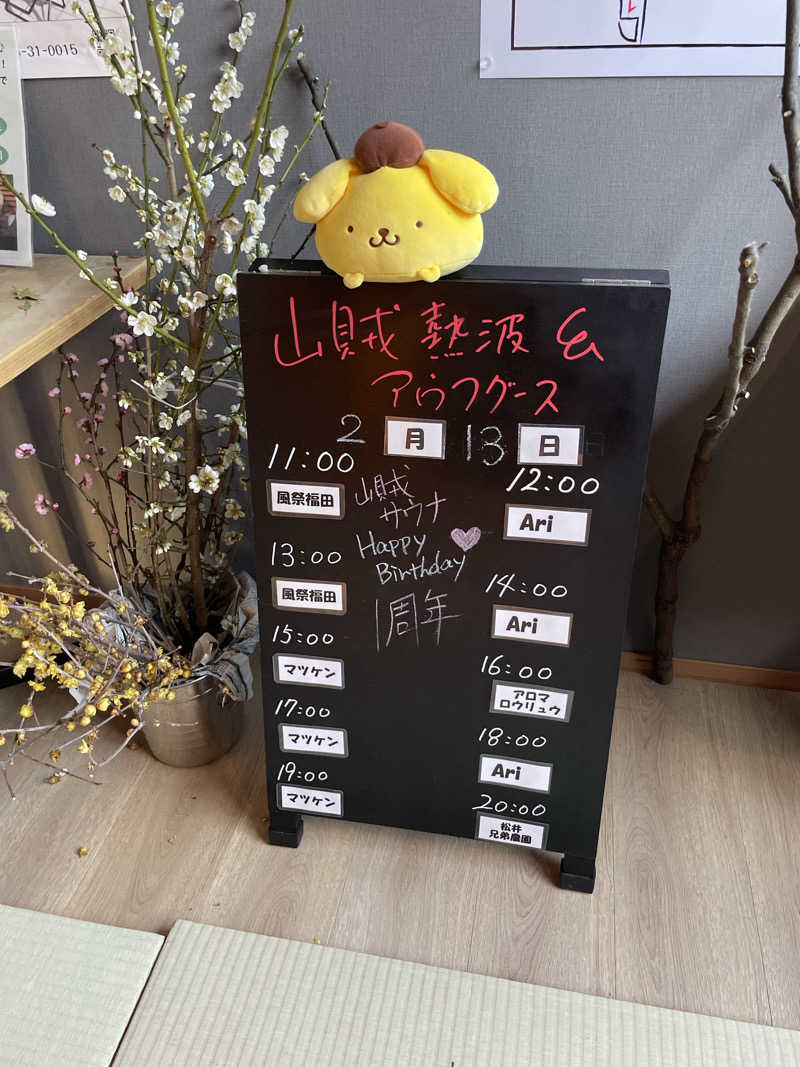 -31-0015
山賊 熱波 &
アウフグース
2 月 13 日
11:00
風祭福田
13:00
風祭福田
15:00
マツケン
17:00
マツケン
19:00
マツケン
山賊
サウナ
Happy
Birthday
1周年
12:00
Ari
14:00
Ari
16:00
アロマ
ロウリュウ
18:00
Ari
20:00
松井
兄弟農園